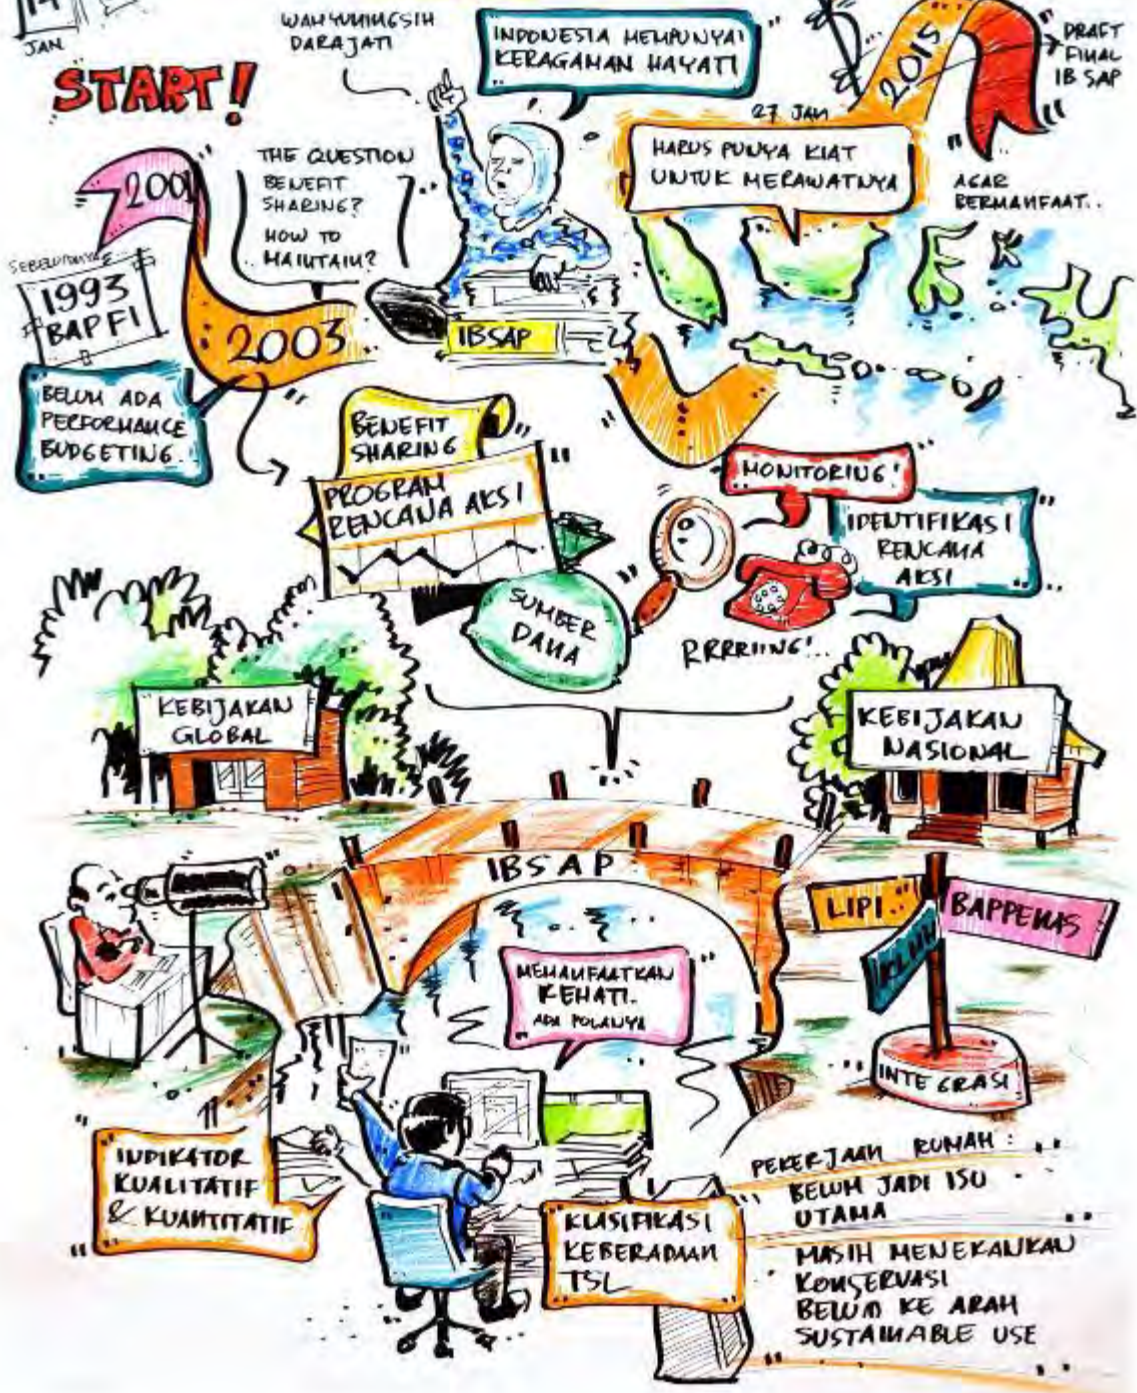 14
JAN
START!
WAHYUNINGSIH
DARAJATI
INDONESIA MEMPUNYAI
KERAGAMAN HAYATI
2015
DRAFT
FINAL
IBSAP
27 JAN
HARUS PUNYA KIAT
UNTUK MERAWATNYA
AGAR
BERMANFAAT..
2001
THE QUESTION
BENEFIT
SHARING?
HOW TO
MAINTAIN?
SEBELUMNYA
1993
BAPFI
2003
IBSAP
BELUM ADA
PERFORMANCE
BUDGETING.
BENEFIT
SHARING
PROGRAM
RENCANA AKSI
MONITORING!
IDENTIFIKASI
RENCANA
AKSI
SUMBER
DANA
RRRRIING!..
KEBIJAKAN
GLOBAL
KEBIJAKAN
NASIONAL
IBSAP
LIPI
BAPPENAS
KLHK
INTEGRASI
MEMANFAATKAN
KEHATI.
ADA POLANYA
INDIKATOR
KUALITATIF
& KUANTITATIF
KLASIFIKASI
KEBERADAAN
TSL
PEKERJAAN RUMAH :
BELUM JADI ISU
UTAMA
MASIH MENEKANKAN
KONSERVASI
BELUM KE ARAH
SUSTAINABLE USE